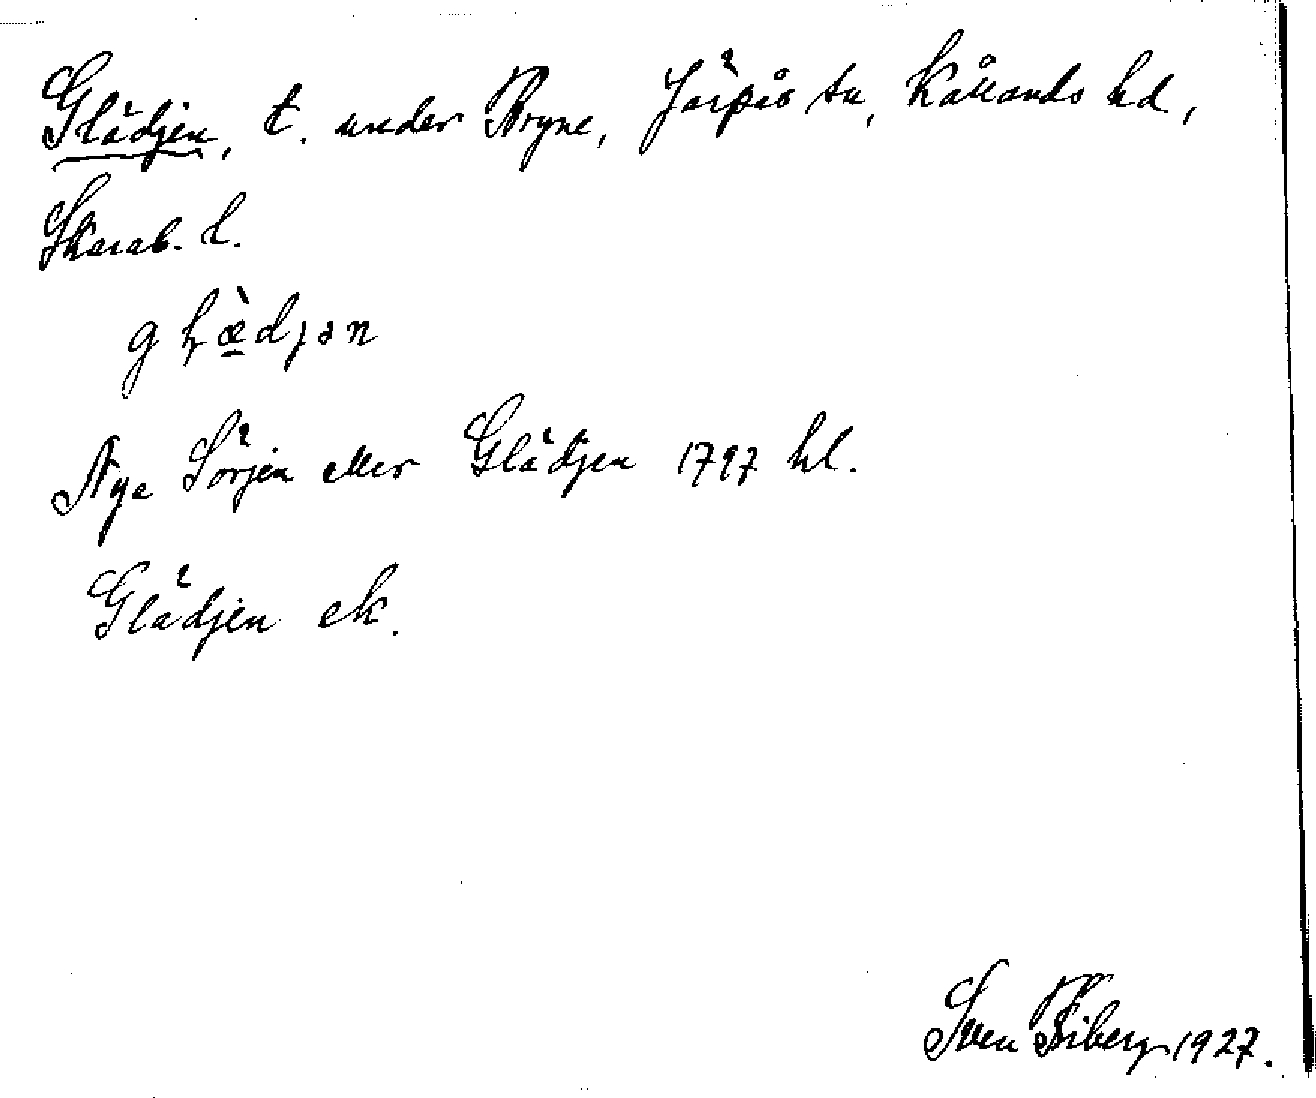 Glädjen, t. under Bryne, Järpås sn, Kållands hd,
Skarab. l.
gḷæ̠̀djən
Nye Sörjen eller Glädjen 1797 hl.
Glädjen ek.
Sven Fiberg 1927.